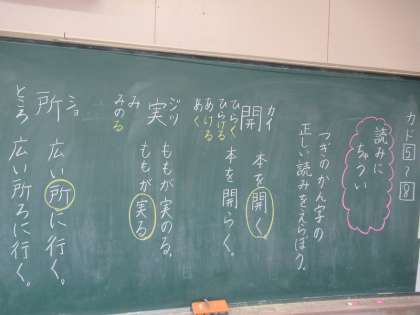 カド5〜8
読みに
ちゅうい
つぎのかん字の
正しい読みをえらぼう。
カイ
開
ひらく
ひらける
あける
あく
本を開く。
本を開らく。
ジツ
実
み
みのる
ももが実のる。
ももが実る
ショ
所
ところ
広い所に行く。
広い所ろに行く。